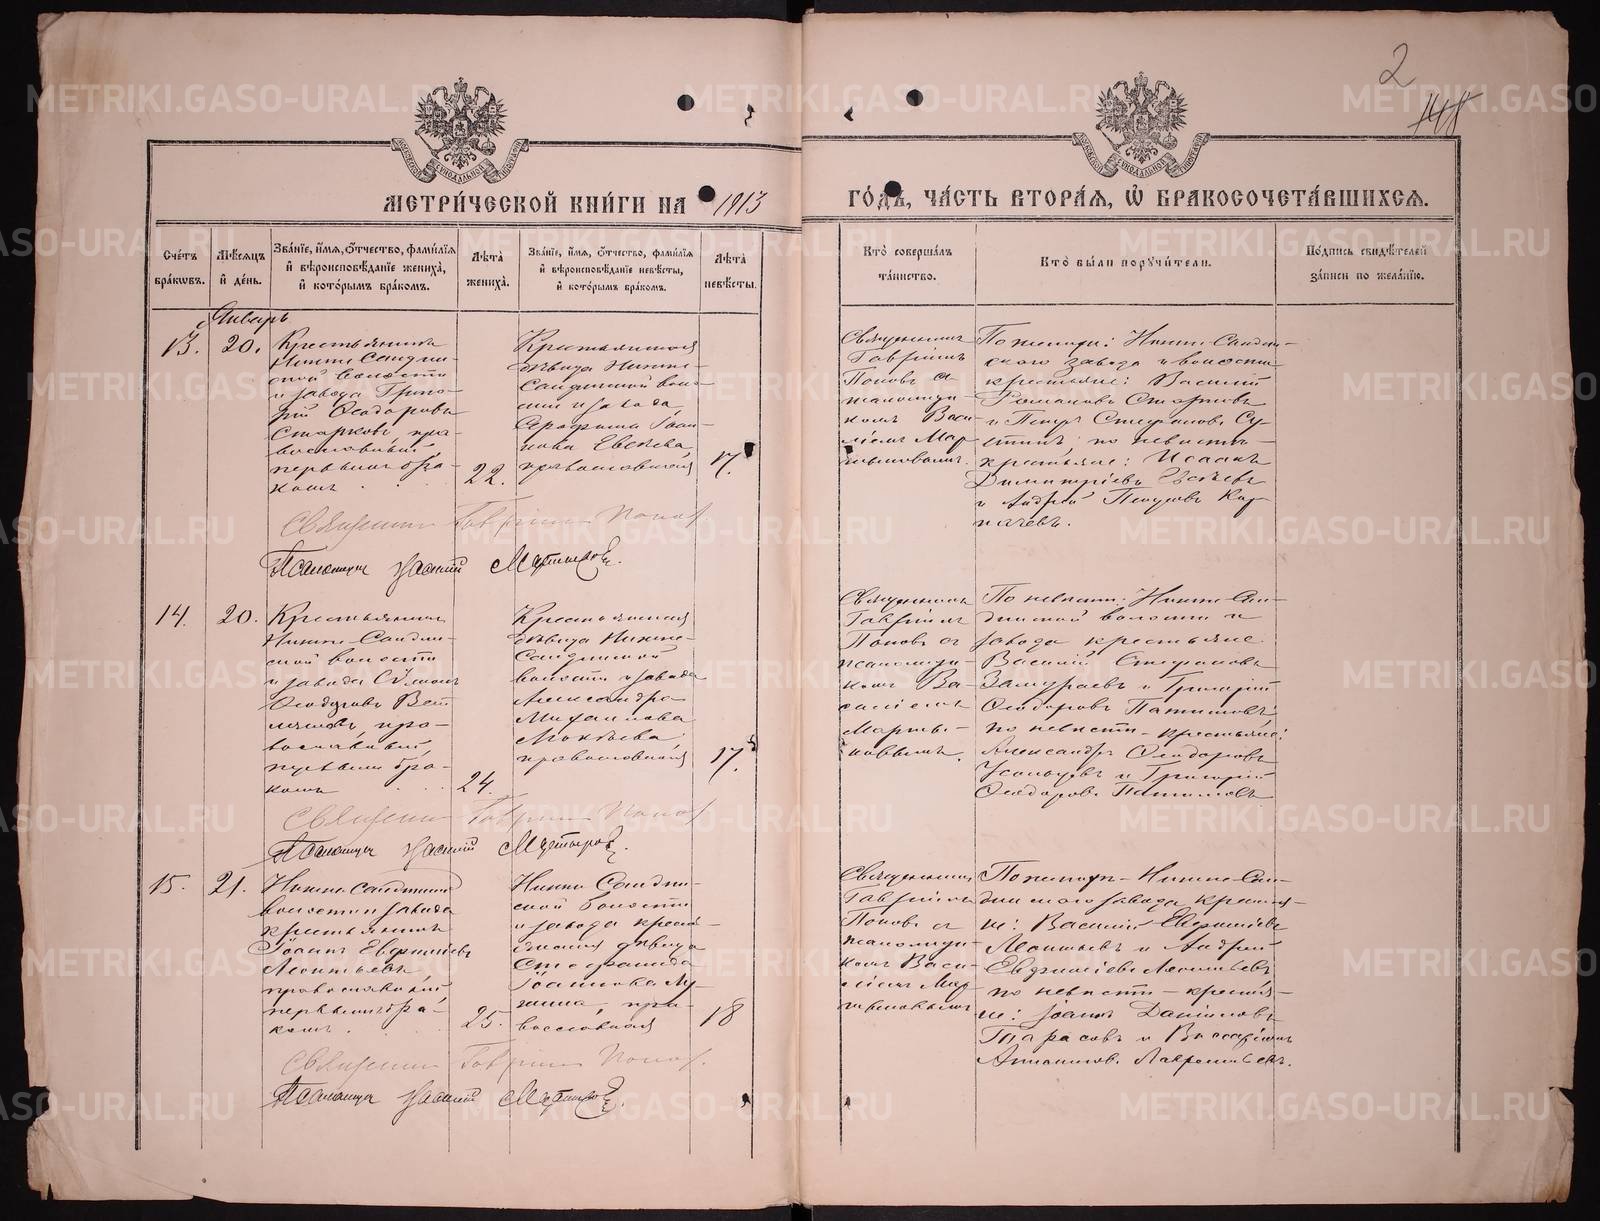 2
МОСКОВСКОЙ СѴНОДАЛЬНОЙ ТИПОГРАФІИ
МЕТРИ́ЧЕСКОЙ КНИ́ГИ НА 1913
ГО́ДЪ, ЧА́СТЬ ВТОРА́Я, Ѡ҆ БРАКОСОЧЕТА́ВШИХСЯ.
Сче́тъ бра́кѡвъ.
Мѣ́сяцъ и҆ де́нь.
Зва́нїе, и҆́мя, ѻ҆́тчество, фамѝлїя и҆ вѣроисповѣ́данїе жениха̀, и҆ кото́рымъ бра́комъ.
Лѣ́та жениха̀.
Зва́нїе, и҆́мя, ѻ҆́тчество, фамѝлїя и҆ вѣроисповѣ́данїе невѣ́сты, и҆ кото́рымъ бра́комъ.
Лѣ́та невѣ́сты.
Кто̀ соверша́лъ та́инство.
Кто̀ бы́ли поручи́тели.
По́дпись свидѣ́телей за́писи по жела́нїю.
Январь
13.
20.
Крестьянинъ
Нижне-Салдин-
ской волости
и завода Григо-
рій Ѳеодоровъ
Старковъ, пра-
вославный,
первымъ бра-
комъ
22.
Крестьянская
дѣвица Нижне-
Салдинской воло-
сти и завода
Іоан-
нова Евсѣева,
православная
17.
Священникъ
Гавріилъ
Поповъ съ
псаломщи-
комъ Васи-
ліемъ Мар-
тыновымъ.
По женихѣ: Нижне-Салдин-
скаго завода и волости
крестьяне: Василій
Романовъ Старковъ
и Петръ Стефановъ Су-
по невѣстѣ-
крестьяне: Исаакъ
Димитріевъ Евсѣевъ
и Андрей
Священникъ Гавріилъ Поповъ
Псаломщикъ Василій Мартыновъ.
14.
20.
Крестьянинъ
Нижне-Салдин-
ской волости
и завода Сѵмеонъ
Ѳеодоровъ
пра-
вославный,
первымъ бра-
комъ
24.
Крестьянская
дѣвица Нижне-
Салдинской
волости и завода
Александра
Михаилова
православная
17.
Священникъ
Гавріилъ
Поповъ съ
псаломщи-
комъ Ва-
силіемъ
Марты-
новымъ.
По женихѣ: Нижне-Сал-
динской волости и
завода крестьяне
Василій Стефановъ
Замураевъ и Григорій
Ѳеодоровъ
по невѣстѣ - крестьяне:
Александръ Ѳеодоровъ
Усольцевъ и Григорій
Ѳеодоровъ
Священникъ Гавріилъ Поповъ
Псаломщикъ Василій Мартыновъ.
15.
21.
Нижне-Салдинской
волости и завода
крестьянинъ
Іоаннъ Евфиміевъ
Леонтьевъ,
православный,
первымъ бра-
комъ
25.
Нижне-Салдин-
ской волости
и завода кресть-
янская дѣвица
Стефанида
Іоаннова
пра-
вославная
18
Священникъ
Гавріилъ
Поповъ съ
псаломщи-
комъ Васи-
ліемъ Мар-
тыновымъ
По женихѣ - Нижне-Сал-
динскаго завода крестья-
не: Василій Евфиміевъ
Леонтьевъ и Андрей
Евфиміевъ Леонтьевъ
по невѣстѣ - крестья-
не: Іоаннъ Даниловъ
Тарасовъ и Виссаріонъ
Лаврентьевъ.
Священникъ Гавріилъ Поповъ.
Псаломщикъ Василій Мартыновъ.
METRIKI.GASO-URAL.RU